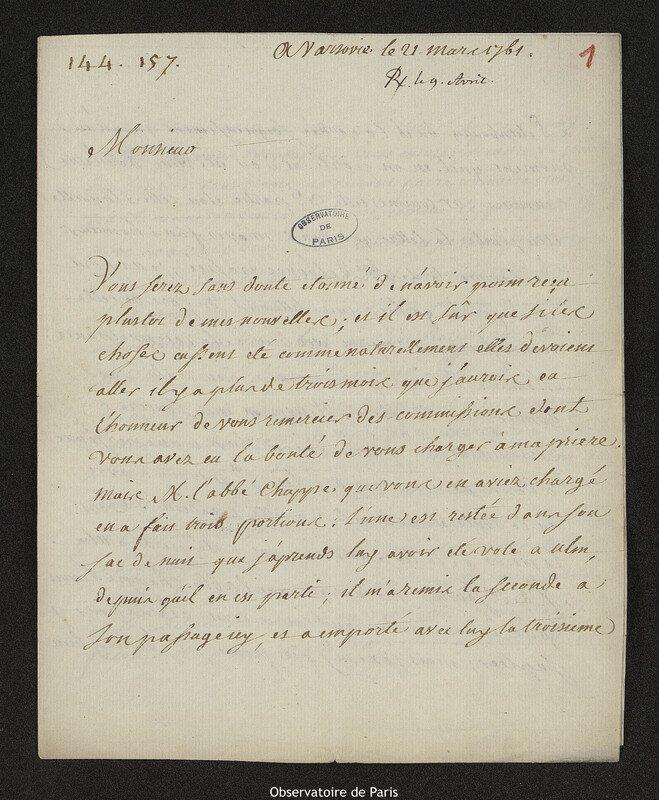 144. 157.
A Varsovie le 21 mars 1761.
1
Rx. le 9. Avril.
Monsieur
OBSERVATOIRE
DE
PARIS
Vous serez sans doute etonné de n'avoir point reçu
plustot de mes nouvelles; et il est sûr que si les
choses eussent eté comme naturellement elles devoient
aller il y a plus de trois mois que j'aurois eu
l'honneur de vous remercier des commissions dont
vous avez eu la bonté de vous charger à ma priere.
mais M. l'abbé Chappe que vous en aviez chargé
en a fait trois portions: l'une est restée dans son
sac de nuit que j'aprends luy avoir eté volé a Ulm,
depuis qu'il en est parti; il m'a remis la seconde a
son passage icy, et a emporté avec luy la troisieme
Observatoire de Paris